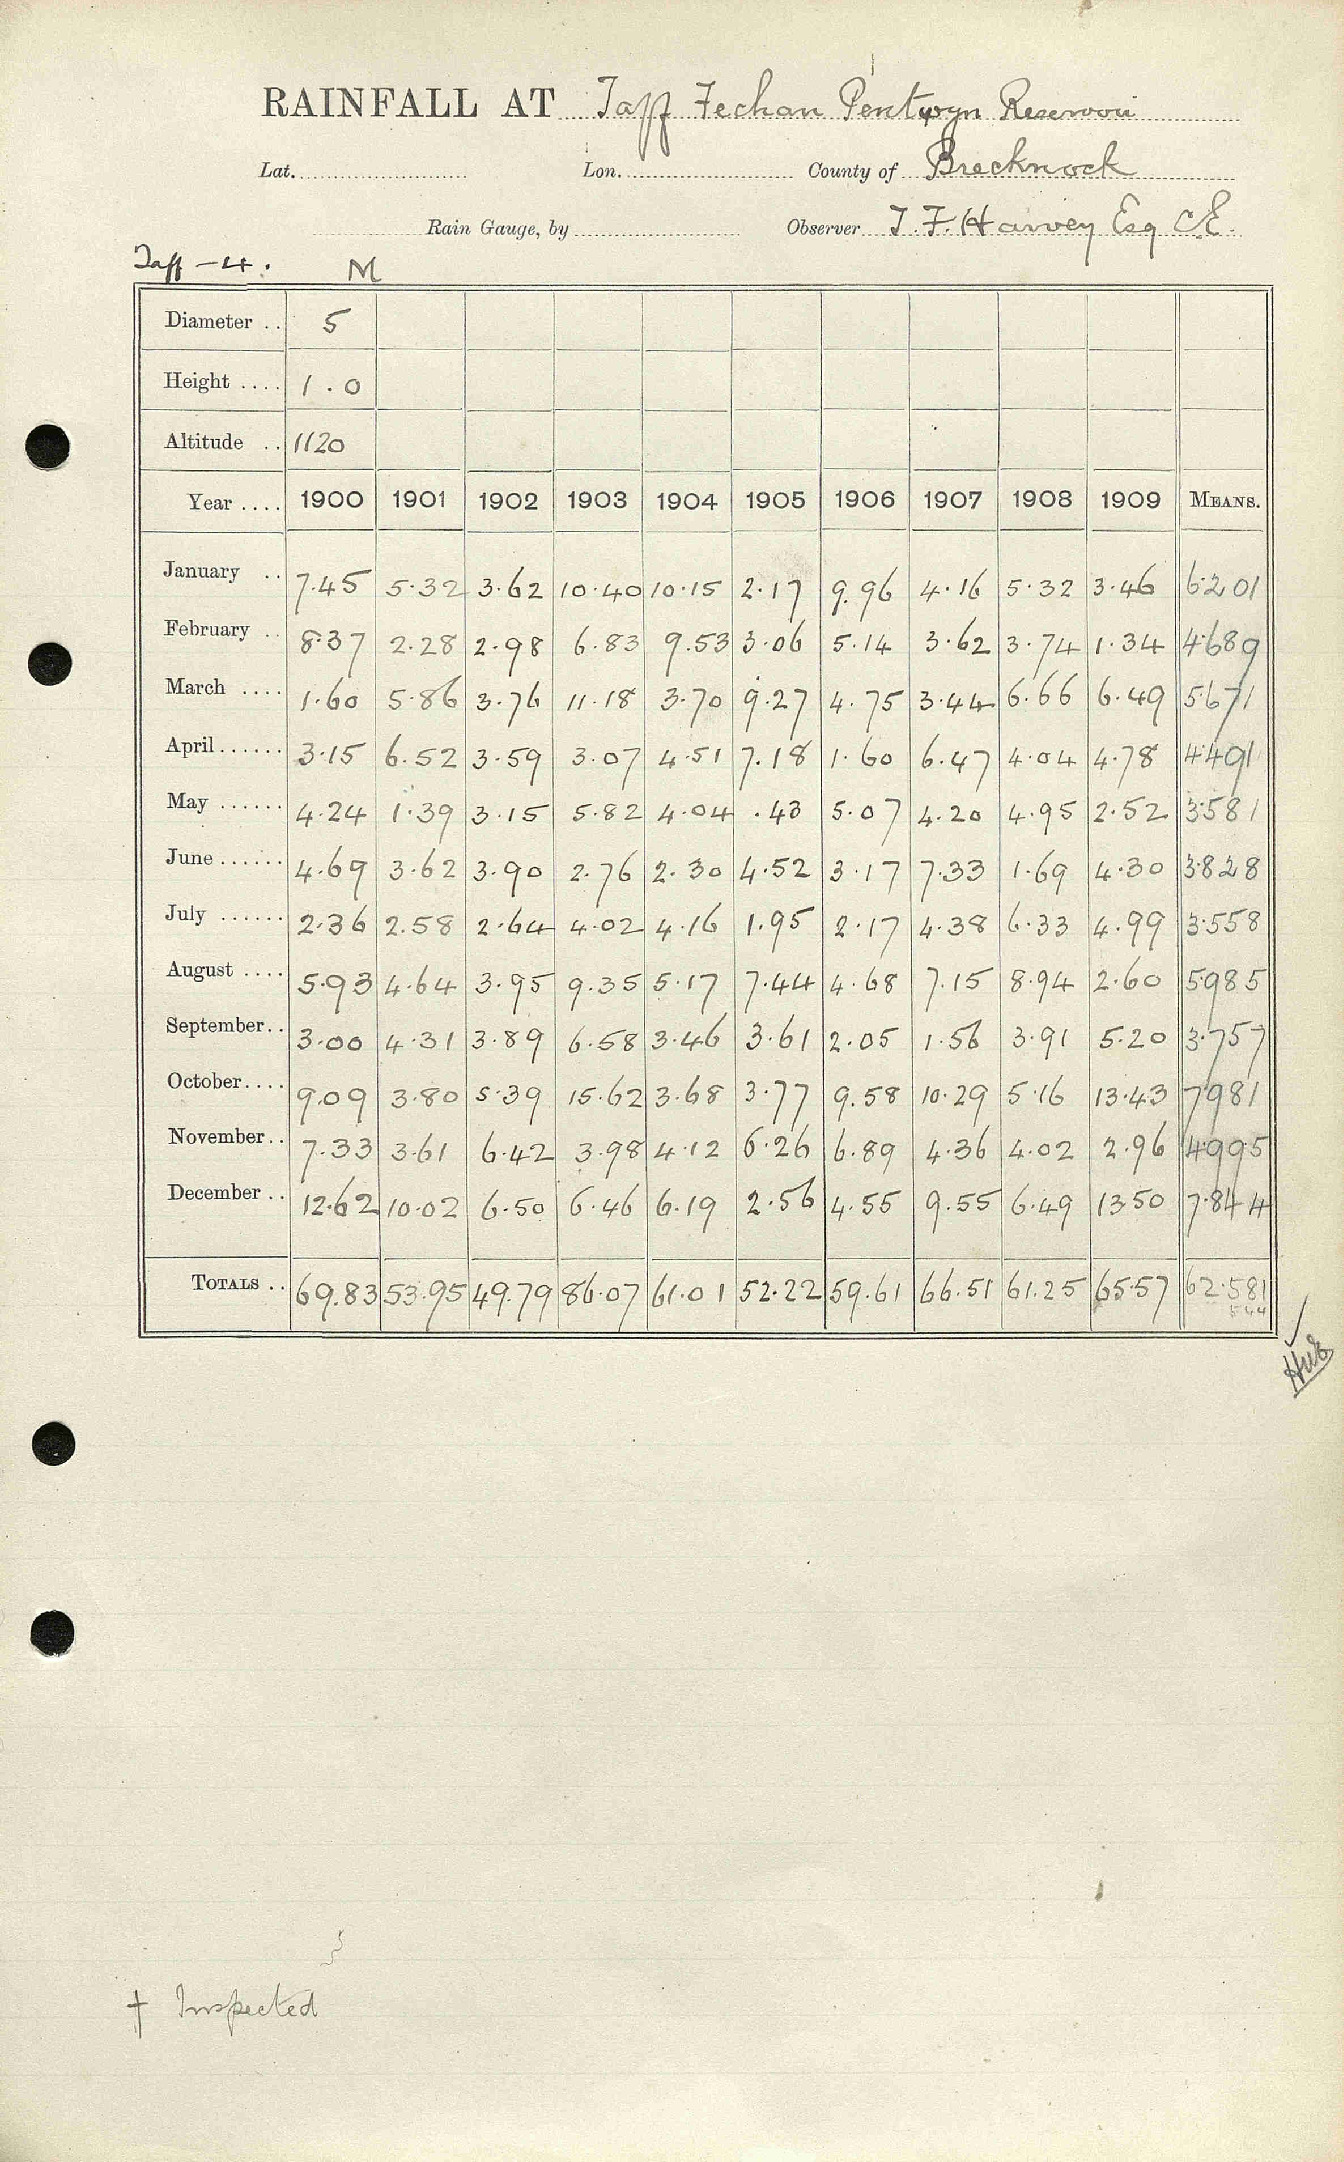 RAINFALL AT Taff Fechan Pentwyn Reservoir
Lat. Lon. County of Brecknock
Rain Gauge, by Observer T. F. Harvey Esq CE.
Taff - 4. M
Diameter .. 5
Height .... 1.0
Altitude .. 1120
Year .... 1900 1901 1902 1903 1904 1905 1906 1907 1908 1909 MEANS.
January .. 7.45 5.32 3.62 10.40 10.15 2.17 9.96 4.16 5.32 3.46 6.201
February .. 8.37 2.28 2.98 6.83 9.53 3.06 5.14 3.62 3.74 1.34 4.689
March .... 1.60 5.86 3.76 11.18 3.70 9.27 4.75 3.44 6.66 6.49 5.671
April ...... 3.15 6.52 3.59 3.07 4.51 7.18 1.60 6.47 4.04 4.78 4.491
May ...... 4.24 1.39 3.15 5.82 4.04 .43 5.07 4.20 4.95 2.52 3.581
June ...... 4.69 3.62 3.90 2.76 2.30 4.52 3.17 7.33 1.69 4.30 3.828
July ...... 2.36 2.58 2.64 4.02 4.16 1.95 2.17 4.38 6.33 4.99 3.558
August .... 5.93 4.64 3.95 9.35 5.17 7.44 4.68 7.15 8.94 2.60 5.985
September.. 3.00 4.31 3.89 6.58 3.46 3.61 2.05 1.56 3.91 5.20 3.757
October.... 9.09 3.80 5.39 15.62 3.68 3.77 9.58 10.29 5.16 13.43 7.981
November.. 7.33 3.61 6.42 3.98 4.12 6.26 6.89 4.36 4.02 2.96 4.995
December .. 12.62 10.02 6.50 6.46 6.19 2.56 4.55 9.55 6.49 13.50 7.844
TOTALS .. 69.83 53.95 49.79 86.07 61.01 52.22 59.61 66.51 61.25 65.57 62.581
544
† Inspected